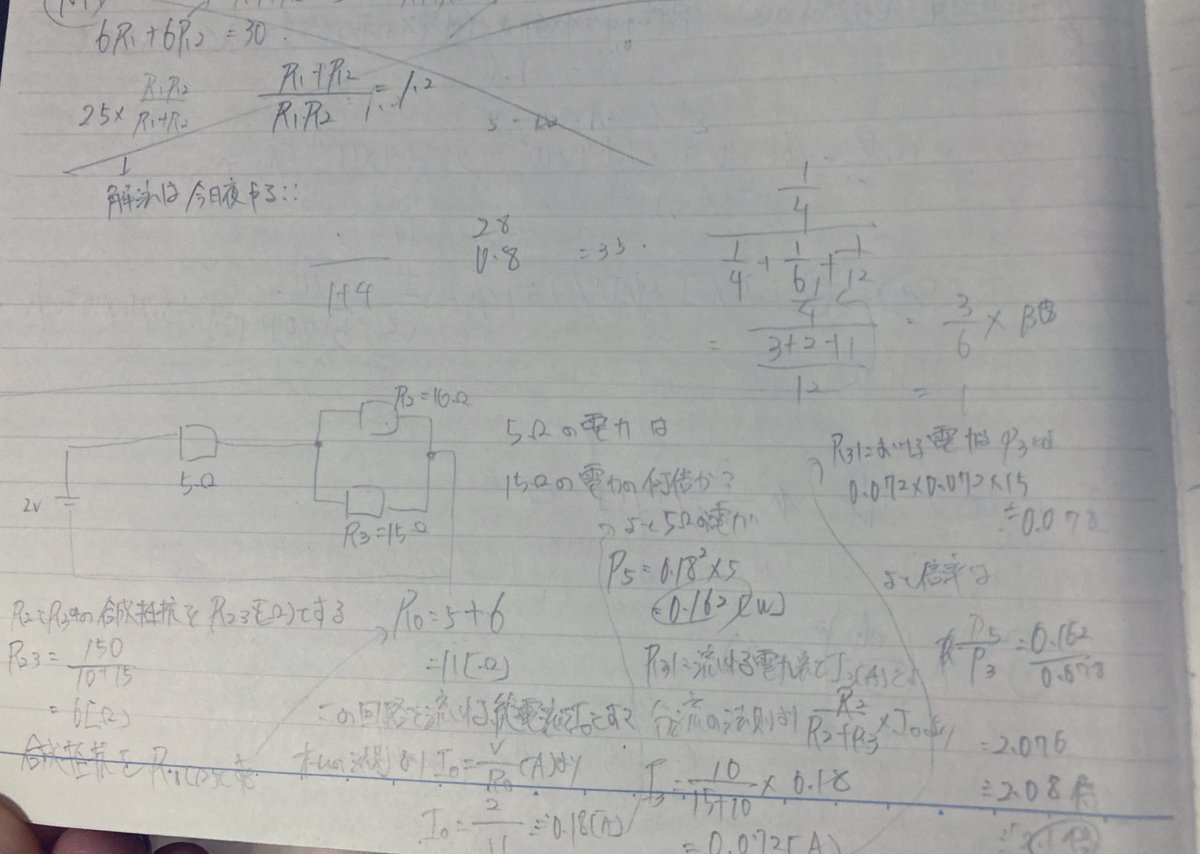 6R₁+6R₂=30
25× R₁R₂/R₁+R₂
R₁+R₂/R₁R₂ = 1.2
解法は今日夜やる::
1+4
28
0.8 =35
1/4
1/4 + 1/6 + 1/12
= 1/4
3+2+1
12
3/6 ×
= 1
R₂=10Ω
5Ω
R₃=15Ω
2V
5Ωの電力は
15Ωの電力の何倍か?
よって5Ωの電力は
P₅=0.18²×5
=0.162[W]
R₃における電力は P₃=
0.072×0.072×15
≒0.078
よって倍率は
P₅/P₃ = 0.162/0.078
=2.076
≒2.08倍
R₂とR₃の合成抵抗をR₂₃[Ω]とする
R₂₃= 150/10+15
=6[Ω]
合成抵抗を
R₀=5+6
=11[Ω]
この回路で流れる総電流をI₀とすると
オームの法則より I₀= V/R₀ (A)より
I₀= 2/11 ≒0.18(A)
R₃に流れる電流を I₃(A)とし
分流の法則より R₂/R₂+R₃ × I₀より
I₃= 10/15+10 × 0.18
=0.072[A]